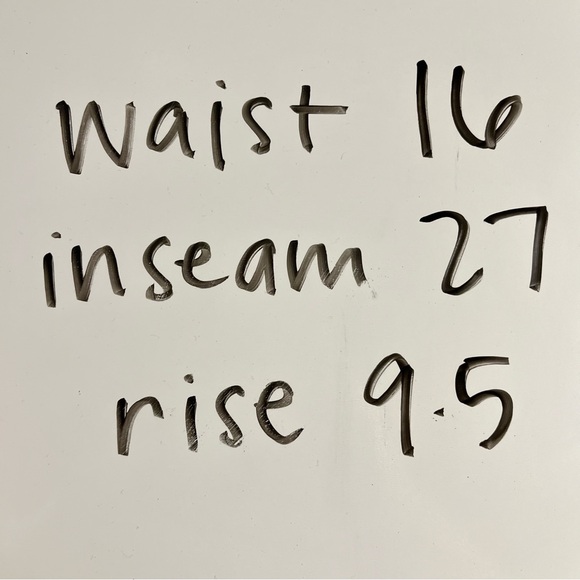 waist 16
inseam 27
rise 9.5